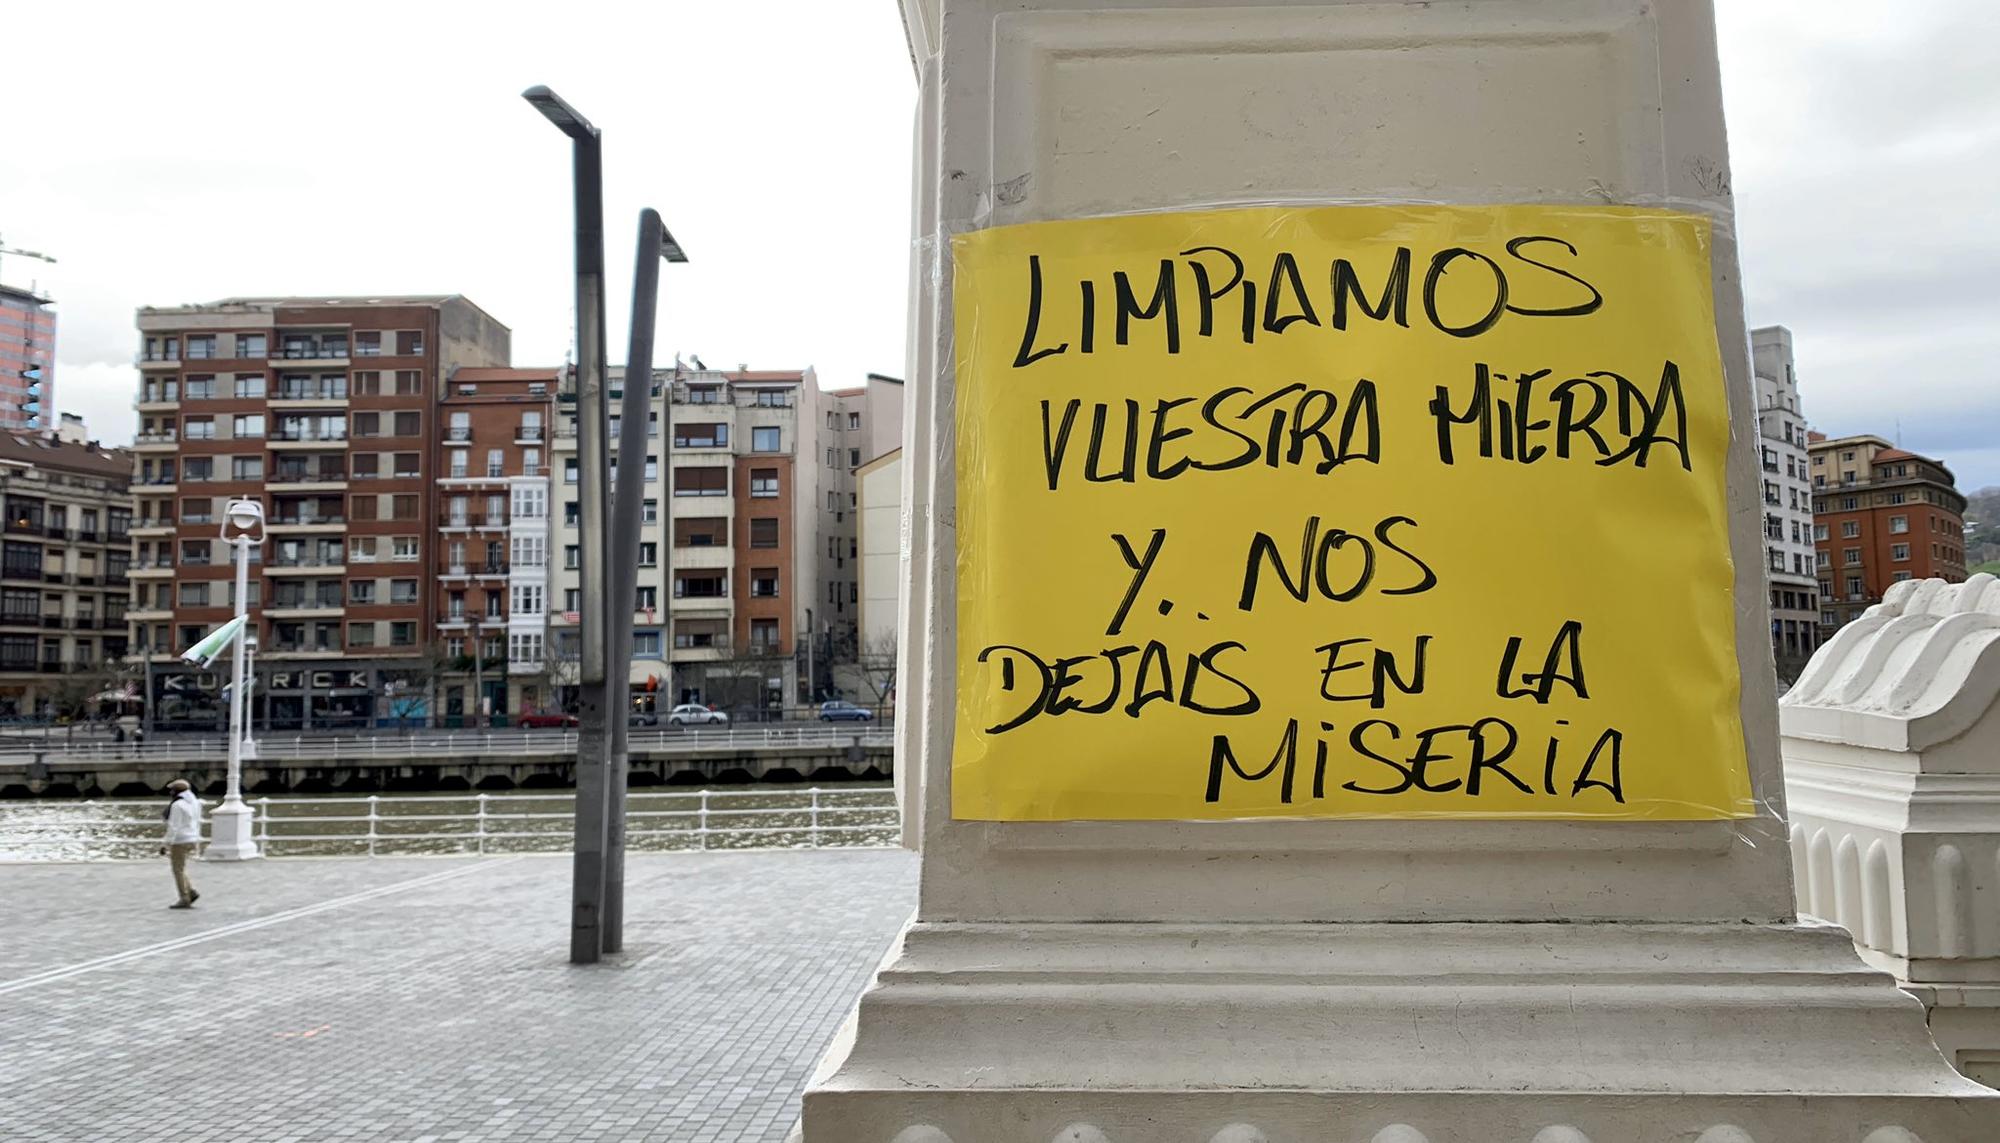 LIMPIAMOS
VUESTRA MiERDA
Y. NOS
DEJAIS EN LA
MiSERiA